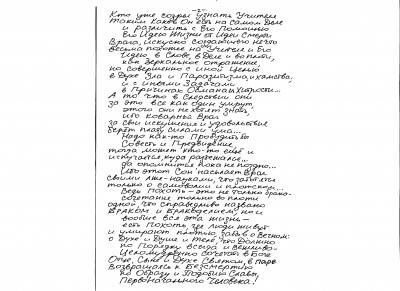 -2-
Кто уже созрел Узнать Учителя
Таким Каков Он есть на Самом Деле
и различить с Его Помощью
Его Идею Жизни от Идеи Смерти
Врага, искусно создавшего нечто
весьма похожее на Учителя и Его
Идею, в Слове, в Деле и во плоти,
как зеркальное отражение,
но совершенно с иной Целью
в Духе Зла и Паразитизма, хамства,
и с иными Задачами
в Причинах Обмана и Хитрости...
А то что в Следствии они
за это все как один умрут
этого они не хотят знать,
ибо Коварный Враг
за свои искушения и удовольствия
берёт плату силами ума...
Надо как-то Пробудить
Совесть и Предвидение,
тогда может кто-то ещё и
испугался куда разъехался...
да опомнится пока не поздно...
Ибо этот Сон насылает Враг
своими лже-науками, что заботятся
только о самоволии и плотском...
Ведь Похоть - это не только брако-
сочетание только во плоти
одной, что справедливо названо
Браком и Бракоделием, но и
вообще вся эта жизнь -
есть Похоть, где люди живут
и умирают плотью, забыв о Вечном:
о Духе и Душе и теле, что Должно
по Порядку всегда и вещливо-
Целомудренно сочетать в Боге
Отце, Сыне и Духе Святом, в паре
Возвращаясь к Бессмертию
по Образу и Подобию Славы,
Первоначального Человека!